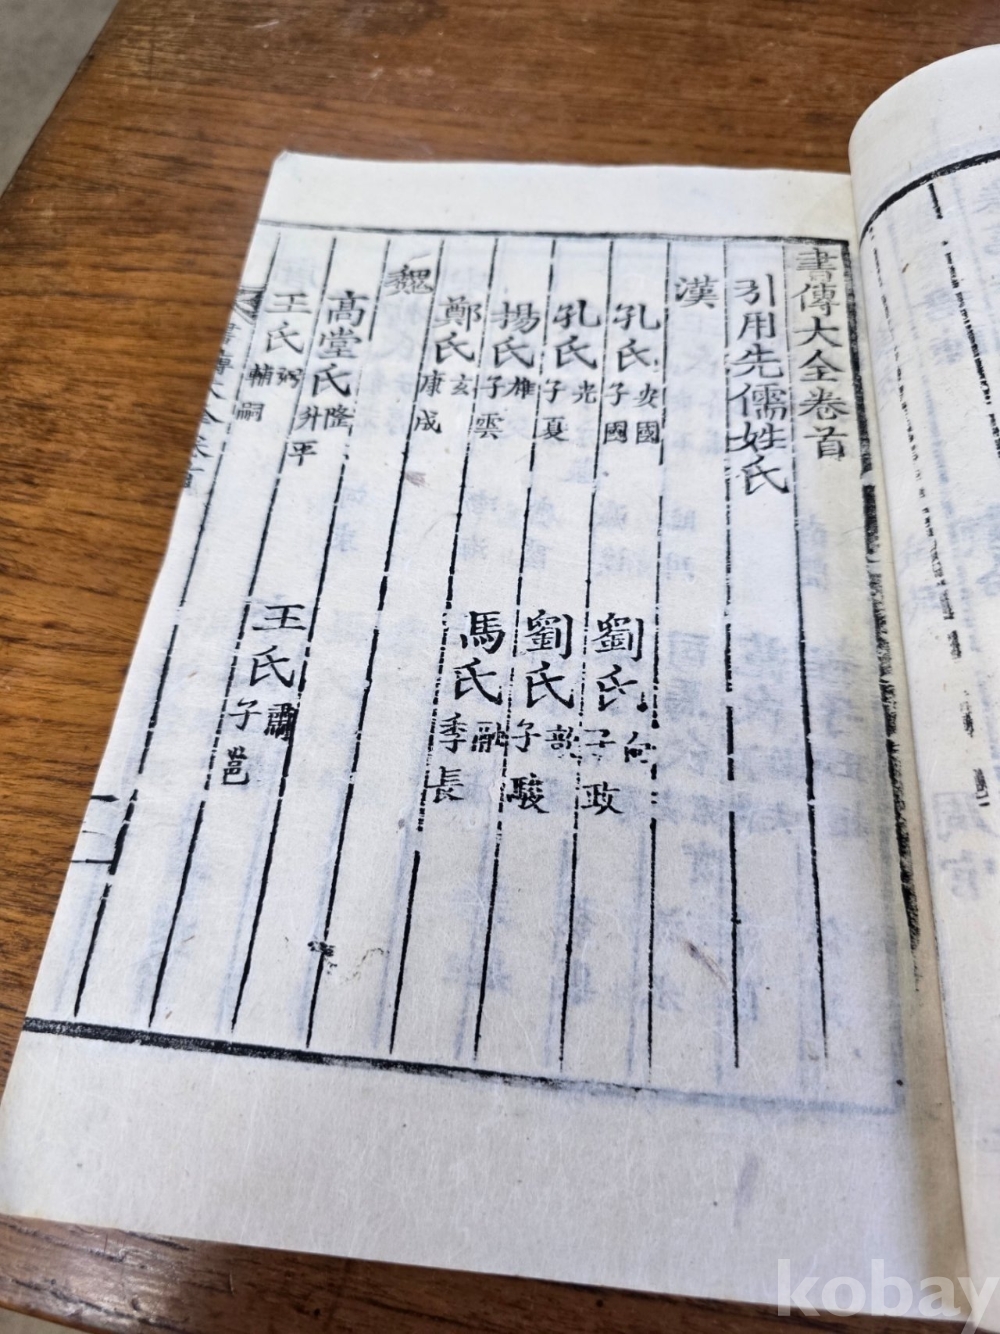 書傳大全卷首
引用先儒姓氏
漢
孔氏安國子國 劉氏向子政
孔氏光子夏 劉氏歆子駿
揚氏雄子雲 馬氏融季長
鄭氏玄康成
魏
高堂氏隆升平
王氏弼輔嗣 王氏肅子邕
書傳大全卷首
kobay